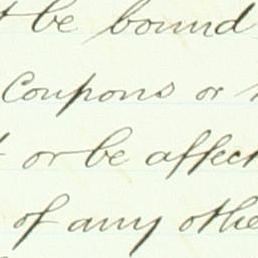 be bound
Coupons or
or be affect
of any othe